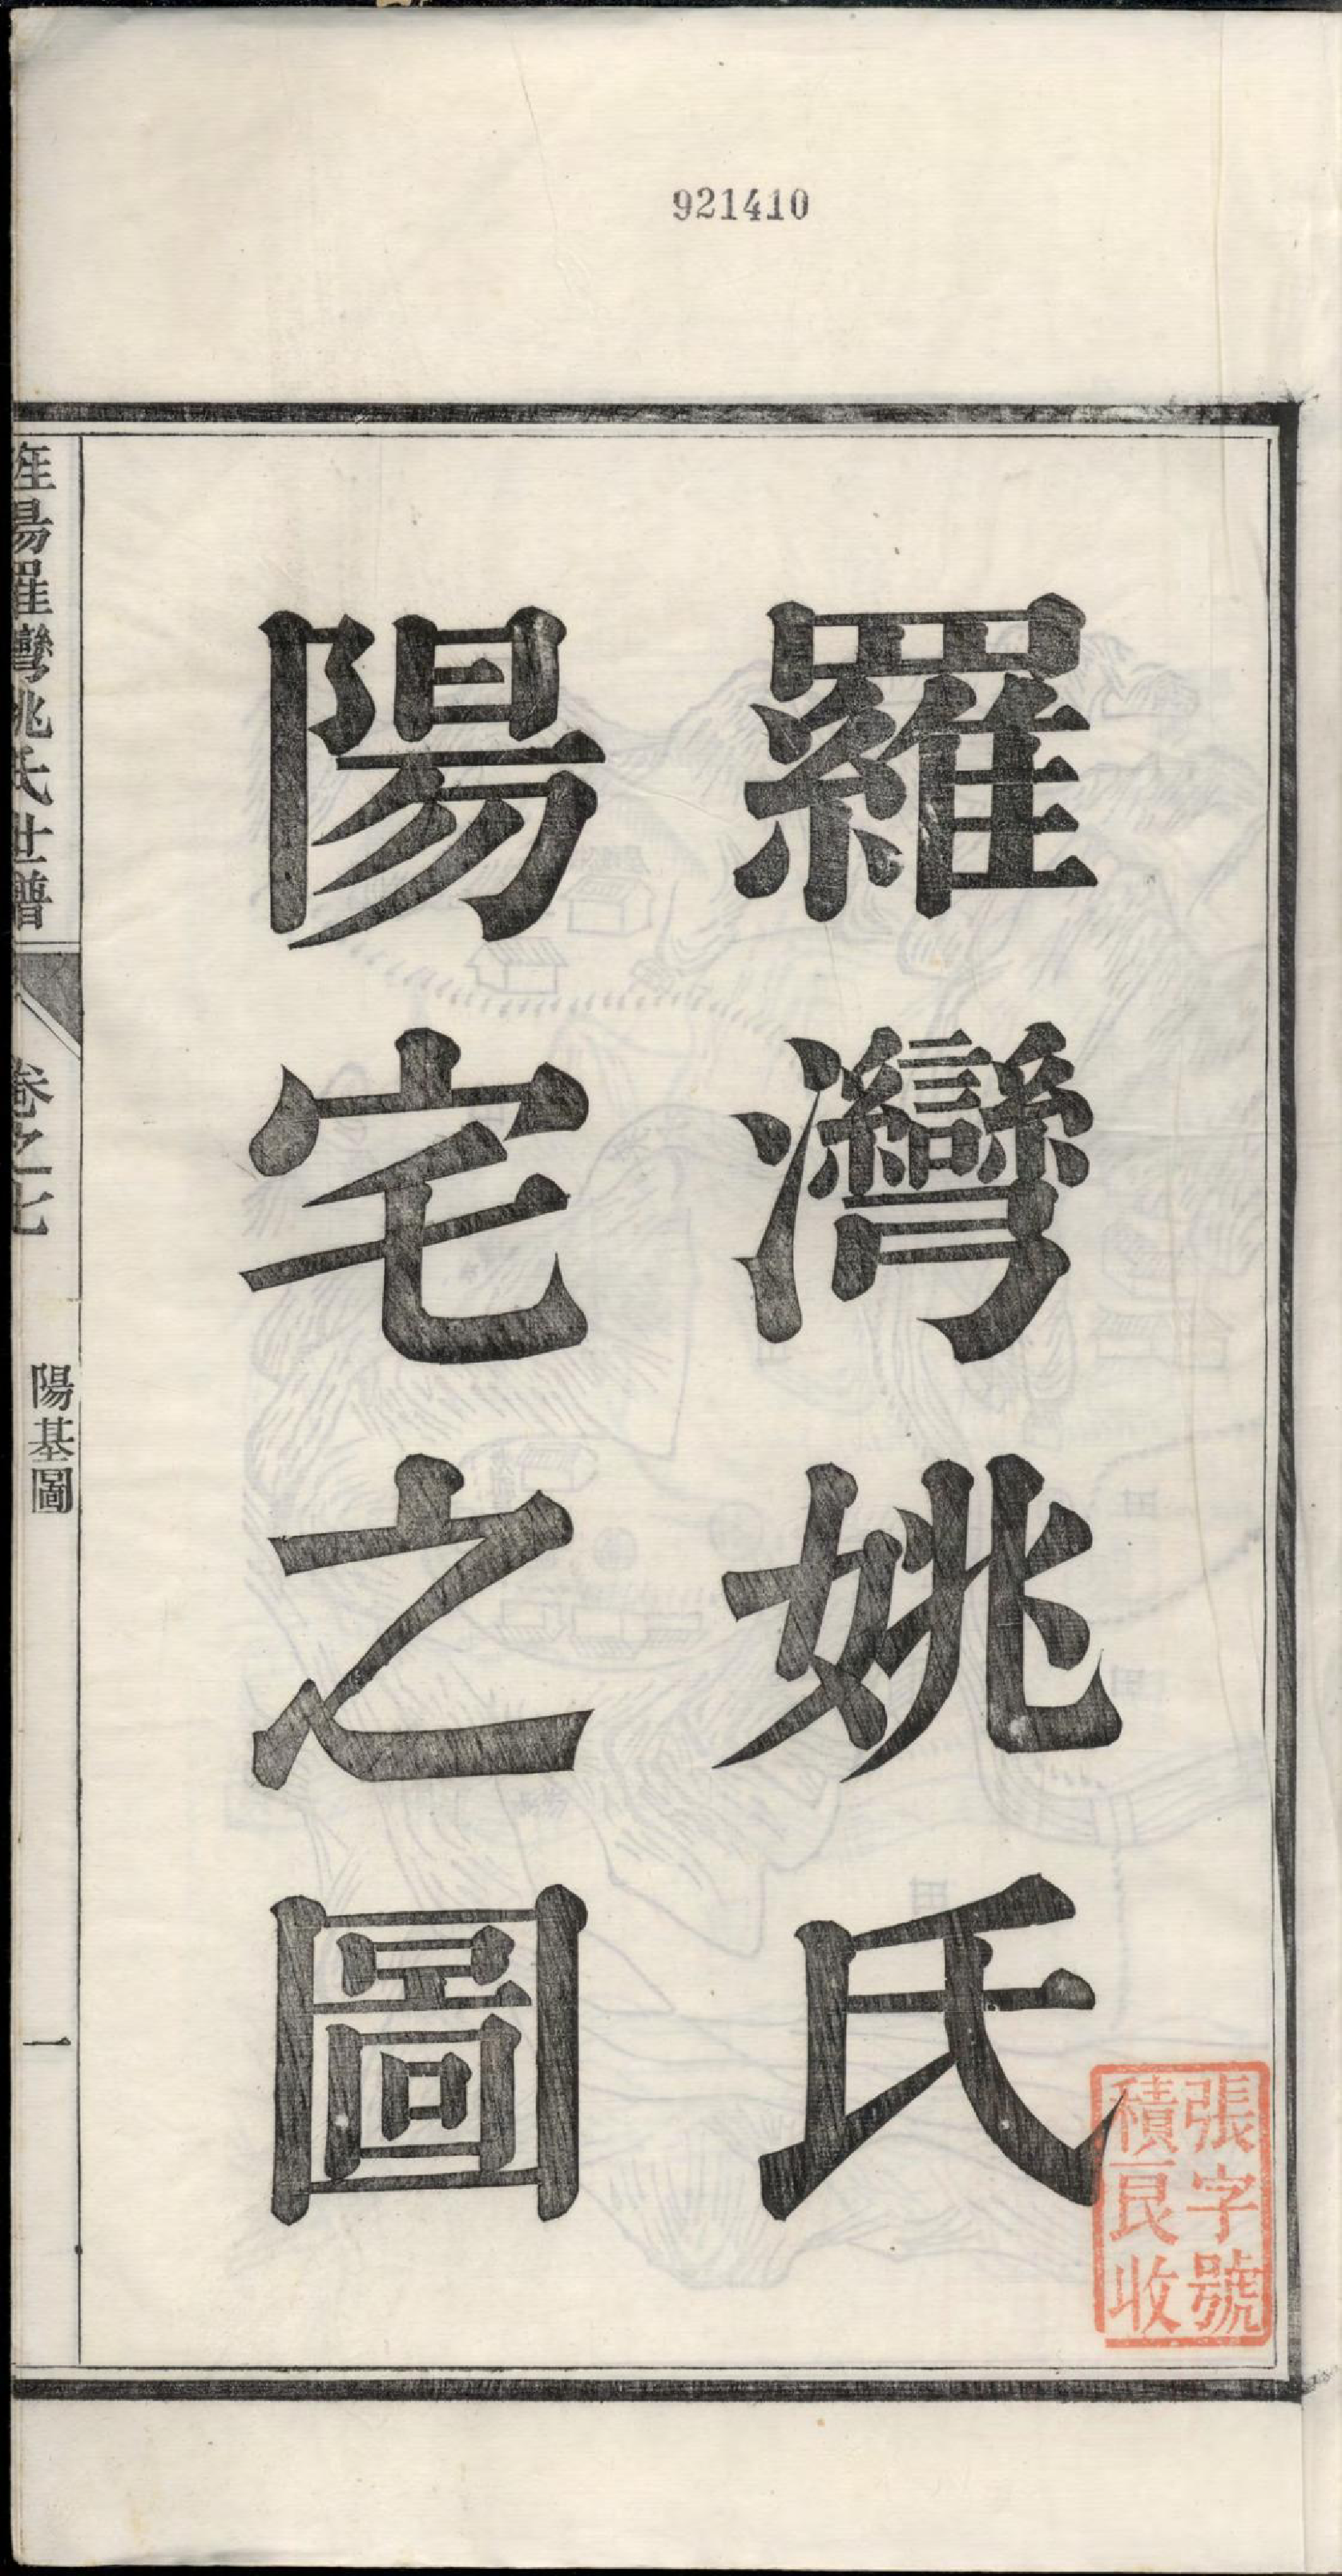 921410
羅灣姚氏
陽宅之圖
旌陽羅灣姚氏世譜
卷之七
陽基圖
一
張字號
積良收